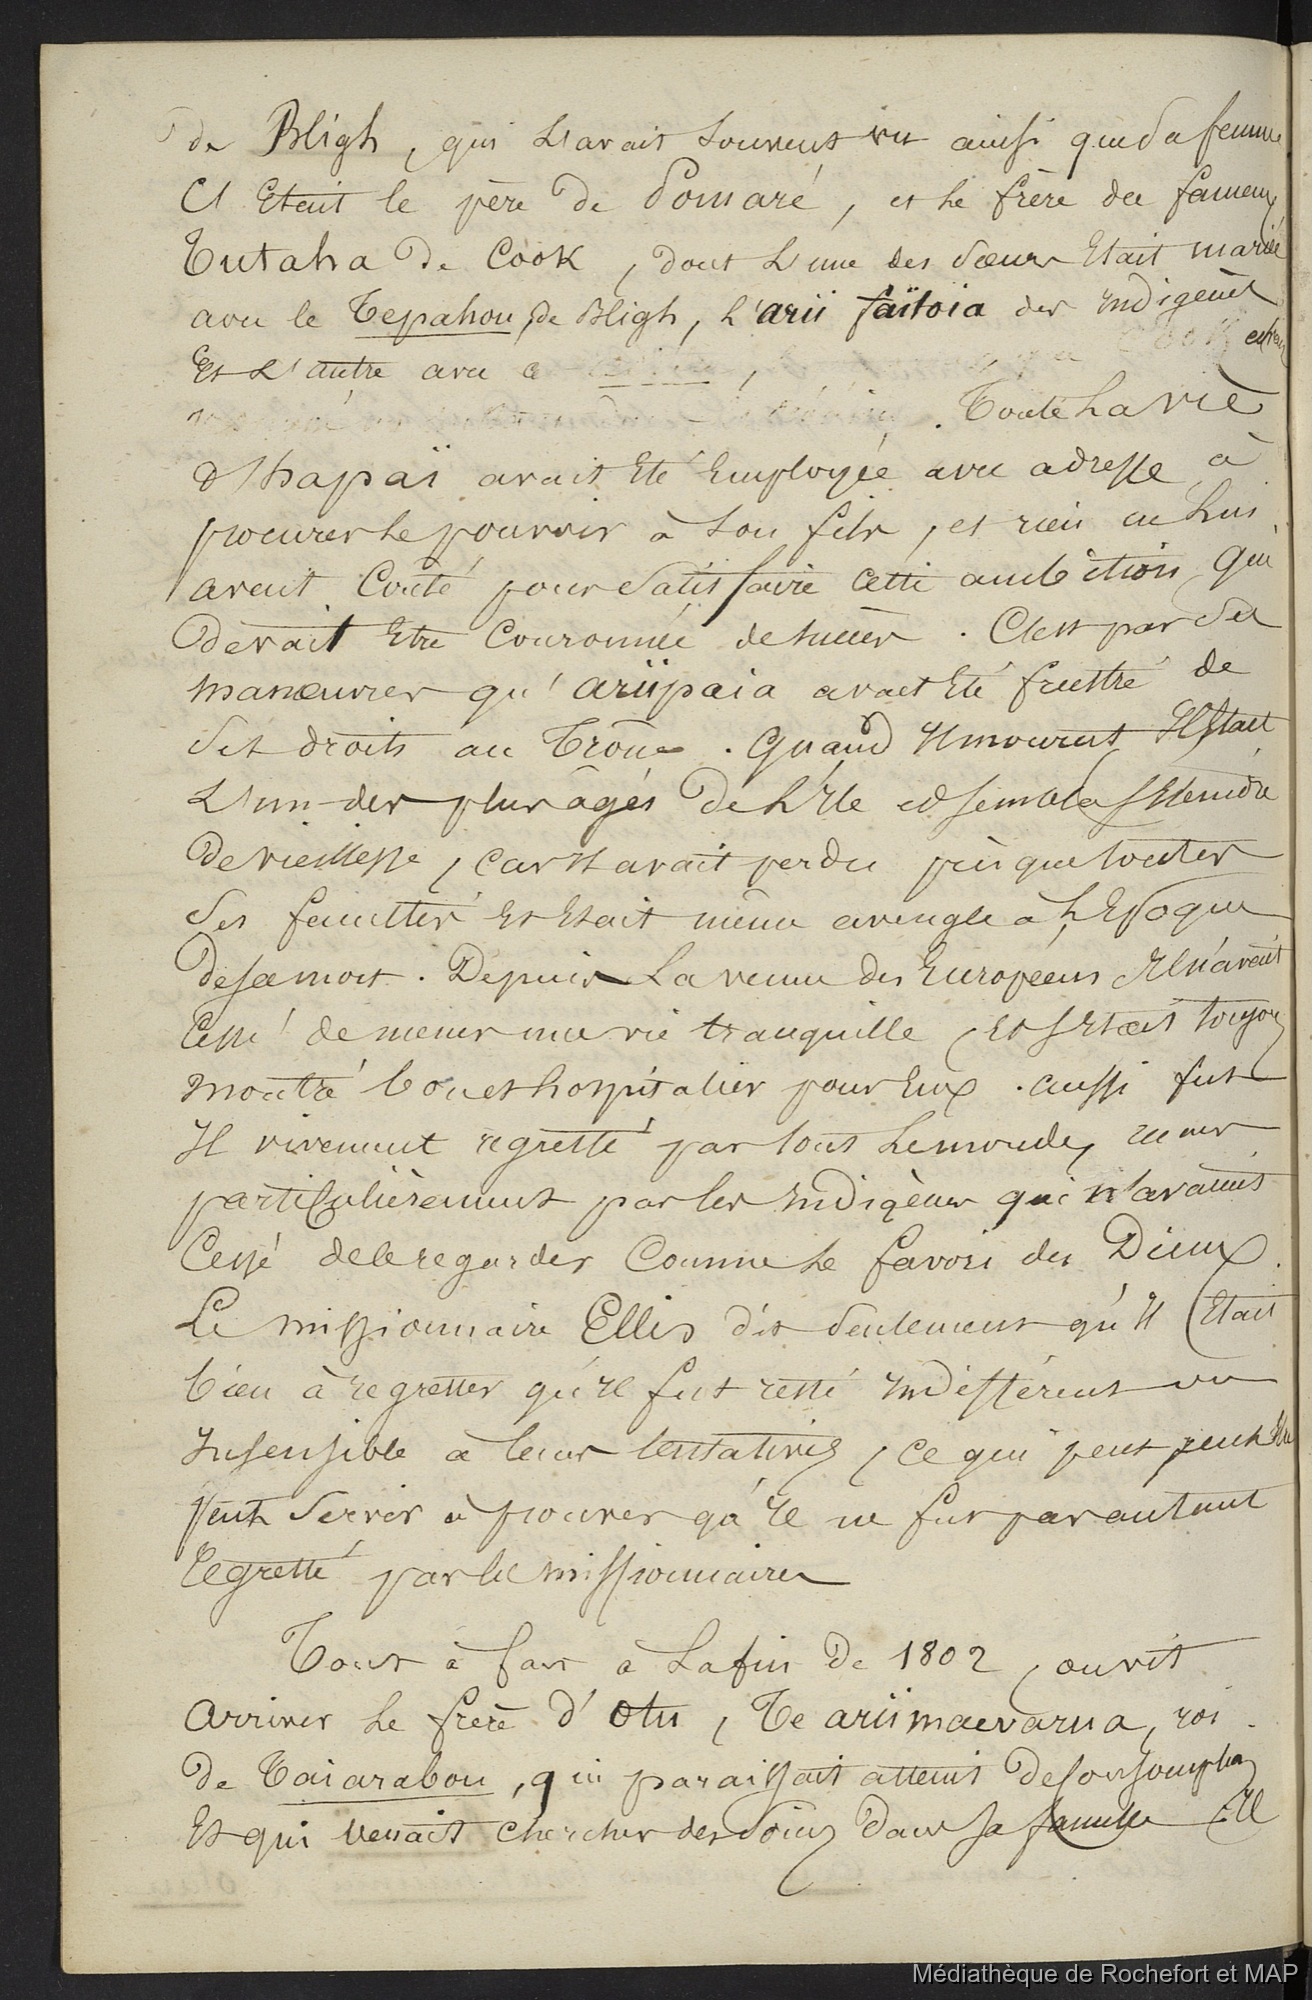 de Bligh, qui l'avait souvent vu ainsi que sa femme
Il Etait le père de Pomaré, et le frère du fameux
Tutaha de Cook, dont l'une des sœurs Etait mariée
avec le Tepahou de Bligh, l'arii faïtoia des indigènes
Et L'autre avec
. Toute la vie
d'hapaï avait Eté Employée avec adresse à
procurer le pouvoir à son fils, et rien ne lui
avait Couté pour satisfaire cette ambition qui
devait Etre Couronnée de succès. C'est par ses
manœuvres qu'ariipaia avait Eté frustré de
ses droits au Trône. Quand Il mourut Il Etait
L'un des plus âgés de l'Ile
de vieillesse, car Il avait perdu presque toutes
ses facultés Et Etait même aveugle à l'Epoque
de sa mort. Depuis La venue des Européens Il n'avait
Cessé de mener une vie tranquille, Et s'Etait toujours
montré bon et hospitalier pour Eux. aussi fut
Il vivement regretté par tout le monde,
particulièrement par les Indigènes qui n'avaient
Cessé de le regarder Comme le favori des Dieux.
Le missionnaire Ellis dit seulement qu'Il Etait
bien à regretter qu'Il fut resté Indifférent ou
Insensible à leurs tentatives, ce qui peut peut Etre
peut servir à prouver qu'Il ne fut pas autant
Regretté par les missionnaires
Tout à fait à La fin de 1802, on vit
Arriver le frère d'Otu, Te ariimaevarua, roi
de Taiarabou, qui paraissait atteint de consomption
Et qui venait chercher des soins dans sa famille. Il
Médiathèque de Rochefort et MAP